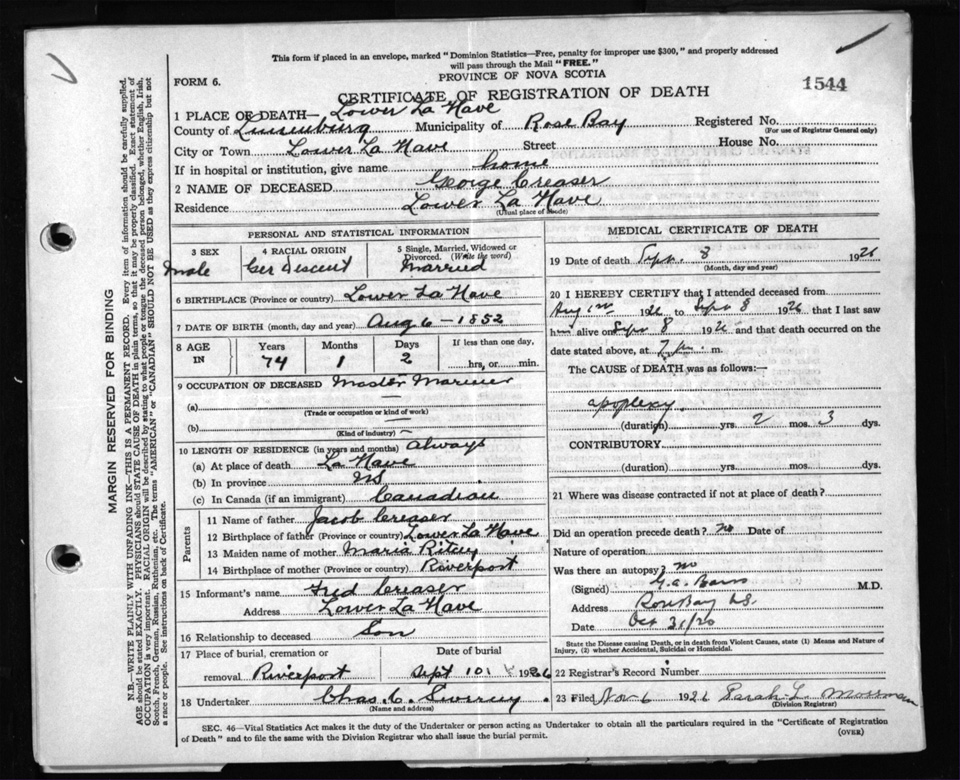 This form if placed in an envelope, marked "Dominion Statistics—Free, penalty for improper use $300," and properly addressed
will pass through the Mail "FREE."
FORM 6.
PROVINCE OF NOVA SCOTIA
1544
CERTIFICATE OF REGISTRATION OF DEATH
1 PLACE OF DEATH— Lower La Have
County of Lunenburg Municipality of Rose Bay Registered No.
(For use of Registrar General only)
City or Town Lower La Have Street House No.
If in hospital or institution, give name home
2 NAME OF DECEASED George Creaser
Residence Lower La Have
(Usual place of abode)
PERSONAL AND STATISTICAL INFORMATION
3 SEX
Male
4 RACIAL ORIGIN
Ger Descent
5 Single, Married, Widowed or
Divorced. (Write the word)
Married
6 BIRTHPLACE (Province or country) Lower La Have
7 DATE OF BIRTH (month, day and year) Aug 6 - 1852
8 AGE
IN
Years
74
Months
1
Days
2
If less than one day,
hrs, or min.
9 OCCUPATION OF DECEASED Master Mariner
(a) —
(Trade or occupation or kind of work)
(b)
(Kind of industry) —
10 LENGTH OF RESIDENCE (in years and months) Always
(a) At place of death La Have
(b) In province NS
(c) In Canada (if an immigrant) Canadian
Parents
11 Name of father Jacob Creaser
12 Birthplace of father (Province or country) Lower La Have
13 Maiden name of mother Maria Ritcy
14 Birthplace of mother (Province or country) Riverport
15 Informant's name Fred Creaser
Address Lower La Have
16 Relationship to deceased Son
17 Place of burial, cremation or
removal Riverport
Date of burial
Sept 10 1926
18 Undertaker Chas. C.
(Name and address)
MEDICAL CERTIFICATE OF DEATH
19 Date of death Sept. 8 1926
(Month, day and year)
20 I HEREBY CERTIFY that I attended deceased from
Aug 1926 to Sept 8 1926 that I last saw
him alive on Sept 8 1926 and that death occurred on
date stated above, at 7 pm. m.
The CAUSE of DEATH was as follows:—
apoplexy.
(duration) yrs. 2 mos. 3 dys.
CONTRIBUTORY
(duration) yrs. mos. dys.
21 Where was disease contracted if not at place of death?
Did an operation precede death? no Date of
Nature of operation
Was there an autopsy? no
(Signed) M.D.
Address Rose Bay NS.
Date Oct 31/26
State the Disease causing Death, or in death from Violent Causes, state (1) Means and Nature of
Injury, (2) whether Accidental, Suicidal or Homicidal.
22 Registrar's Record Number
23 Filed Nov 6 1926 Sarah L. Mossman
(Division Registrar)
SEC. 46—Vital Statistics Act makes it the duty of the Undertaker or person acting as Undertaker to obtain all the particulars required in the "Certificate of Registration
of Death" and to file the same with the Division Registrar who shall issue the burial permit.
(OVER)
MARGIN RESERVED FOR BINDING
N.B.—WRITE PLAINLY WITH UNFADING INK—THIS IS A PERMANENT RECORD. Every item of information should be carefully supplied.
AGE should be stated EXACTLY. PHYSICIANS should STATE CAUSE OF DEATH in plain terms, so that it may be properly classified. Exact statement of
OCCUPATION is very important. RACIAL ORIGIN will be described by stating to what people or tongue the deceased person belonged, whether English, Irish,
Scotch, French, German, Russian, Ruthenian, etc. The terms "AMERICAN" or "CANADIAN" SHOULD NOT BE USED as they express citizenship but not
a race or people. See instructions on back of Certificate.